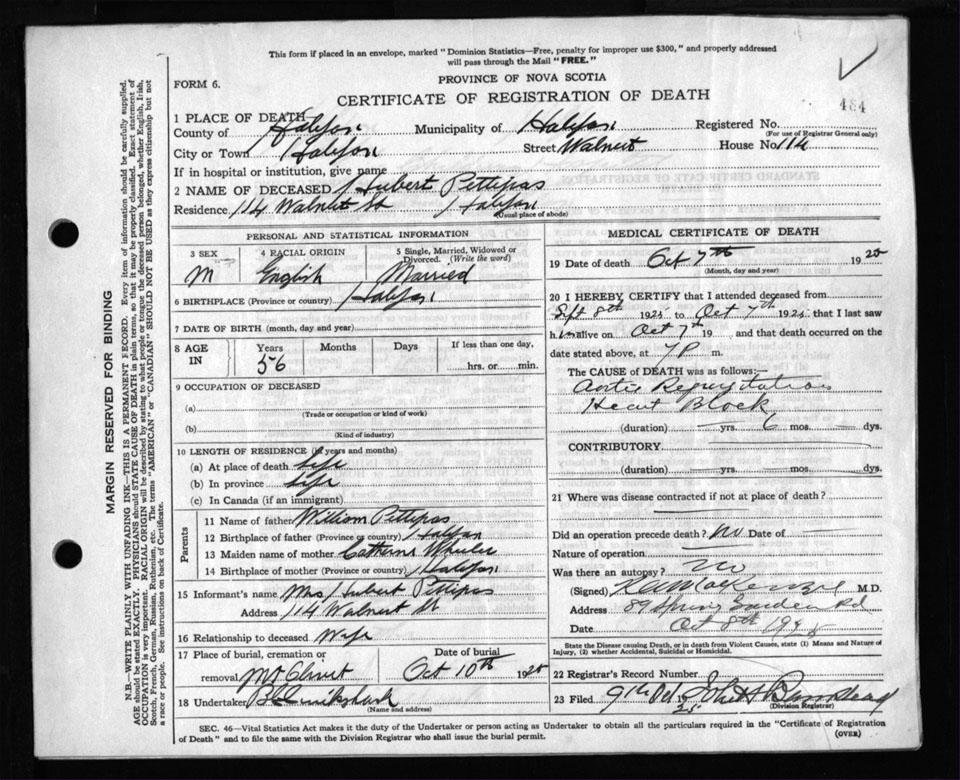 This form if placed in an envelope, marked "Dominion Statistics—Free, penalty for improper use $300," and properly addressed
will pass through the Mail "FREE."
484
FORM 6.
PROVINCE OF NOVA SCOTIA
CERTIFICATE OF REGISTRATION OF DEATH
1 PLACE OF DEATH
County of Halifax Municipality of Halifax Registered No.
(For use of Registrar General only)
City or Town Halifax Street Walnut House No. 114
If in hospital or institution, give name
2 NAME OF DECEASED Hubert Pettipas
Residence 114 Walnut St Halifax
(Usual place of abode)
PERSONAL AND STATISTICAL INFORMATION
3 SEX 4 RACIAL ORIGIN 5 Single, Married, Widowed or
Divorced. (Write the word)
M English Married
6 BIRTHPLACE (Province or country) Halifax
7 DATE OF BIRTH (month, day and year)
8 AGE IN Years Months Days If less than one day,
56 hrs. or min.
9 OCCUPATION OF DECEASED
(a)
(Trade or occupation or kind of work)
(b)
(Kind of industry)
10 LENGTH OF RESIDENCE (in years and months)
(a) At place of death Life
(b) In province Life
(c) In Canada (if an immigrant)
Parents
11 Name of father William Pettipas
12 Birthplace of father (Province or country) Halifax
13 Maiden name of mother Catherine Wheeler
14 Birthplace of mother (Province or country) Halifax
15 Informant's name Mrs Hubert Pettipas
Address 114 Walnut St
16 Relationship to deceased Wife
17 Place of burial, cremation or Date of burial
removal Mt Olivet Oct 10th 1925
18 Undertaker
(Name and address)
MEDICAL CERTIFICATE OF DEATH
19 Date of death Oct 7th 1925
(Month, day and year)
20 I HEREBY CERTIFY that I attended deceased from
Sept 8th 1925 to Oct 7th 1925 that I last saw
him alive on Oct 7th 19 and that death occurred on the
date stated above, at 7 P m.
The CAUSE of DEATH was as follows:
Aortic Regurgitation
Heart Block
(duration) yrs. 6 mos. dys.
CONTRIBUTORY
(duration) yrs. mos. dys.
21 Where was disease contracted if not at place of death?
Did an operation precede death? No Date of
Nature of operation
Was there an autopsy? No
(Signed) MacKenzie M.D.
Address 89 Spring Garden Rd
Date Oct 8th 1925
State the Disease causing Death, or in death from Violent Causes, state (1) Means and Nature of
Injury, (2) whether Accidental, Suicidal or Homicidal.
22 Registrar's Record Number
23 Filed 9th Oct 25
(Division Registrar)
SEC. 46—Vital Statistics Act makes it the duty of the Undertaker or person acting as Undertaker to obtain all the particulars required in the "Certificate of Registration
of Death" and to file the same with the Division Registrar who shall issue the burial permit.
(OVER)
MARGIN RESERVED FOR BINDING
N.B.—WRITE PLAINLY WITH UNFADING INK—THIS IS A PERMANENT RECORD. Every item of information should be carefully supplied.
AGE should be stated EXACTLY. PHYSICIANS should STATE CAUSE OF DEATH in plain terms, so that it may be properly classified. Exact statement of
OCCUPATION is very important. RACIAL ORIGIN will be described by stating to what people or tongue the deceased person belonged, whether English, Irish,
Scotch, French, German, Russian, Ruthenian, etc. The terms "AMERICAN" or "CANADIAN" SHOULD NOT BE USED as they express citizenship but not
a race or people. See instructions on back of Certificate.